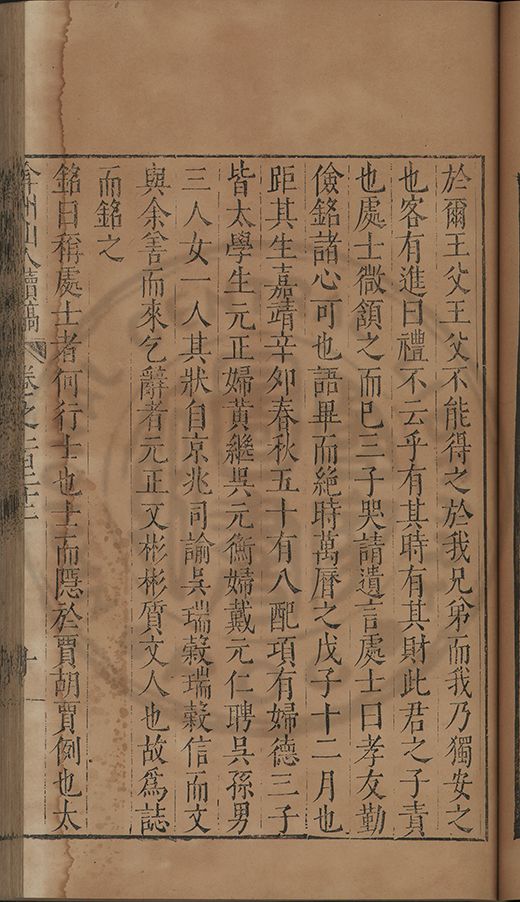 於爾王父王父不能得之於我兄弟而我乃獨安之
也客有進曰禮不云乎有其時有其財此君之子責
也處士微頷之而已三子哭請遺言處士曰孝友勤
儉銘諸心可也語畢而絕時萬曆之戊子十二月也
距其生嘉靖辛夘春秋五十有八配項有婦德三子
皆太學生元正婦黃繼吳元衡婦戴元仁聘吳孫男
三人女一人其狀自京兆司諭吳瑞穀瑞穀信而文
與余善而來乞辭者元正又彬彬質文人也故爲誌
而銘之
銘曰稱處士者何行士也士而隱於賈胡賈例也太
弇州山人續稿 卷之一百二十二